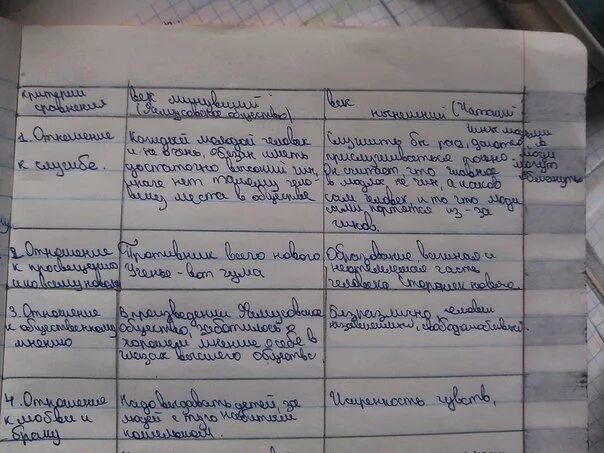 критерии сравнения
век минувший
(Фамусовское общество)
век
нынешний (Чацкий)
1. Отношение
к службе.
Каждый молодой человек
и не очень, обязан иметь
достаточно высокий чин,
иначе нет такому чело-
веку места в обществе
Служить бы рад,
прислуживаться тошно
Он считает, что главное
в людях не чин, а каков
сам человек, и то что люди
сами портятся из-за
чинов.
чины людьми
даются, а
люди
могут
обмануться
2. Отношение
к просвещению
и ко всему новому
Противник всего нового
Ученье - вот чума
Образование, великая и
неотъемлемая часть
человека. Сторонник нового.
3. Отношение
к общественному
мнению
В произведении Фамусовское
общество заботилось о
хорошем мнение о себе в
глазах высшего общества.
Безразлично, человек
независимый, свободолюбивый.
4. Отношение
к любви и
браку
Надо выдавать детей, за
людей с туго набитым
кошельком.
Искренность чувств,